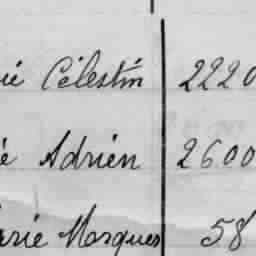 ié Célestin 2220
é Adrien 2600
arie Marques 58